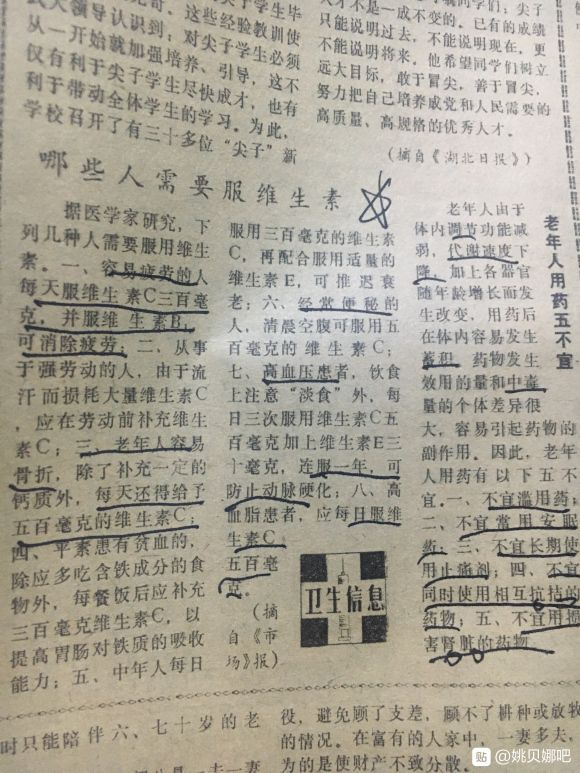 尖子学生毕
大领导认识到：对尖子学生必须
从一开始就加强培养、引导，这不
仅有利于尖子学生尽快成才，也有
利于带动全体学生的学习。为此，
学校召开了有三十多位“尖子”新
才不是一成不变的。已有的成绩
只能说明过去，不能说明现在，更
不能说明将来。他希望同学们树立
远大目标，敢于冒尖，善于冒尖，
努力把自己培养成党和人民需要的
高质量、高规格的优秀人才。
（摘自《湖北日报》）
哪些人需要服维生素
据医学家研究，下
列几种人需要服用维生
素。一、容易疲劳的人
每天服维生素C三百毫
克，并服维生素B，
可消除疲劳；二、从事
于强劳动的人，由于流
汗而损耗大量维生素C
，应在劳动前补充维生
素C；三、老年人容易
骨折，除了补充一定的
钙质外，每天还得给予
五百毫克的维生素C；
四、平素患有贫血的，
除应多吃含铁成分的食
物外，每餐饭后应补充
三百毫克维生素C，以
提高胃肠对铁质的吸收
能力；五、中年人每日
服用三百毫克的维生素
C，再配合服用适量的
维生素E，可推迟衰
老；六、经常便秘的
人，清晨空腹可服用五
百毫克的维生素C；
七、高血压患者，饮食
上注意“淡食”外，每
日三次服用维生素C五
百毫克加上维生素E三
十毫克，连服一年，可
防止动脉硬化；八、高
血脂患者，应每日服维
生素C
五百毫
克。
（摘
自《市
场》报）
卫生信息
老年人用药五不宜
老年人由于
体内调节功能减
弱，代谢速度下
降，加上各器官
随年龄增长而发
生改变，用药后
在体内容易发生
蓄积，药物发生
效用的量和中毒
量的个体差异很
大，容易引起药物的
副作用。因此，老年
人用药有以下五不
宜。一、不宜滥用药；
二、不宜常用安眠
药；三、不宜长期使
用止痛剂；四、不宜
同时使用相互抗拮的
药物；五、不宜用损
害肾脏的药物。
时只能陪伴六、七十岁的老
役，避免顾了支差，顾不了耕种或放牧
的情况。在富有的人家中，一妻多夫，
为的是使财产不致分散。
贴 @姚贝娜吧